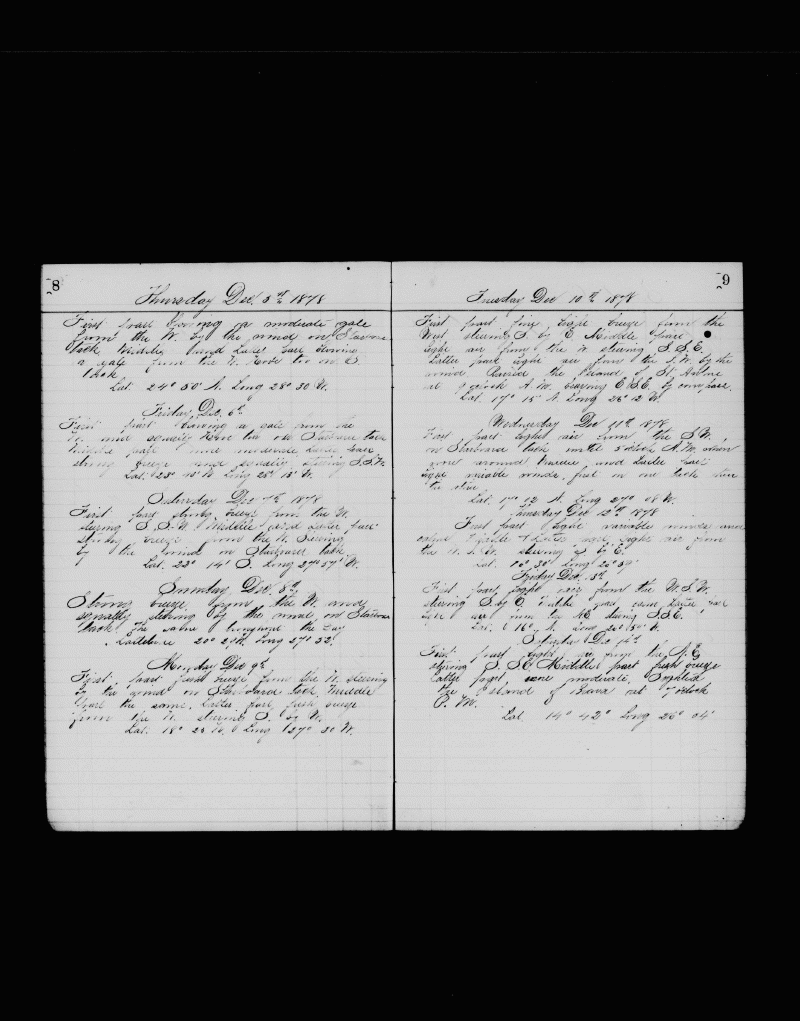 8
Thursday Dec 5th 1878
First part blowing a moderate gale
from the W. by the wind on Starboard
tack. Middle and Later part blowing
a gale from the W. Hove too on
tack
Lat. 24° 50' N. Long 28° 30 W.
Friday Dec. 6th
First part blowing a gale from the
W. and squally Hove too on Starboard tack
Middle part more moderate Later part
strong breeze and squally steering S.S.W.
Lat. 23° 15' N Long 28° 15' W.
Saturday Dec 7th 1878
First part strong breeze from the W.
steering S.S.W. Middle and Later part
strong breeze from the W. Steering
by the wind on Starboard tack
Lat. 22° 14' S. Long 27° 57' W.
Sunday Dec. 8th
Strong breeze from the W. and
squally steering by the wind on Starboard
tack The same throughout the Day
Latitude 20° Long 27° 52'
Monday Dec 9th
First part fresh breeze from the W. steering
by the wind on Starboard tack. Middle
part the same. Latter part fresh breeze
from the W. steering S. by W.
Lat. 18° 25 N. Long 27° 30 W.
9
Tuesday Dec 10th 1878
First part fine light breeze from the
West steering S. by E Middle part
light air from the W steering S.S.E.
Latter part light air from the S.W. by the
wind Raised the Island of St.
at 9 oclock A.M. bearing E.S.E. by compass.
Lat. 17° 15' N. Long 26° 12 W.
Wednesday Dec 11th 1878
First part light air from the S.W.
on Starboard tack until 3 oclock A.M. when
wore around Middle and Later part
light winds, first on one tack then
the other
Lat. 17° 02 N. Long 27° 08 W.
Thursday Dec 12th 1878
First part light variable winds and
calms Middle & Later part light air from
the steering S. by E.
Lat. 16° 30' Long 26° 59'
Friday Dec. 13th
First part light air from the W.S.W.
steering S. by E. Middle part calm Later part
light air from the NE steering S.S.E.
Lat. 16° N. Long 26° 50' W.
Saturday Dec 14th
First part light air from the N.E
steering S.S.E Middle part fresh breeze
Latter part more moderate, Sighted
the Island of Brava at 7 oclock
P.M.
Lat. 14° 42° Long 25° 04'